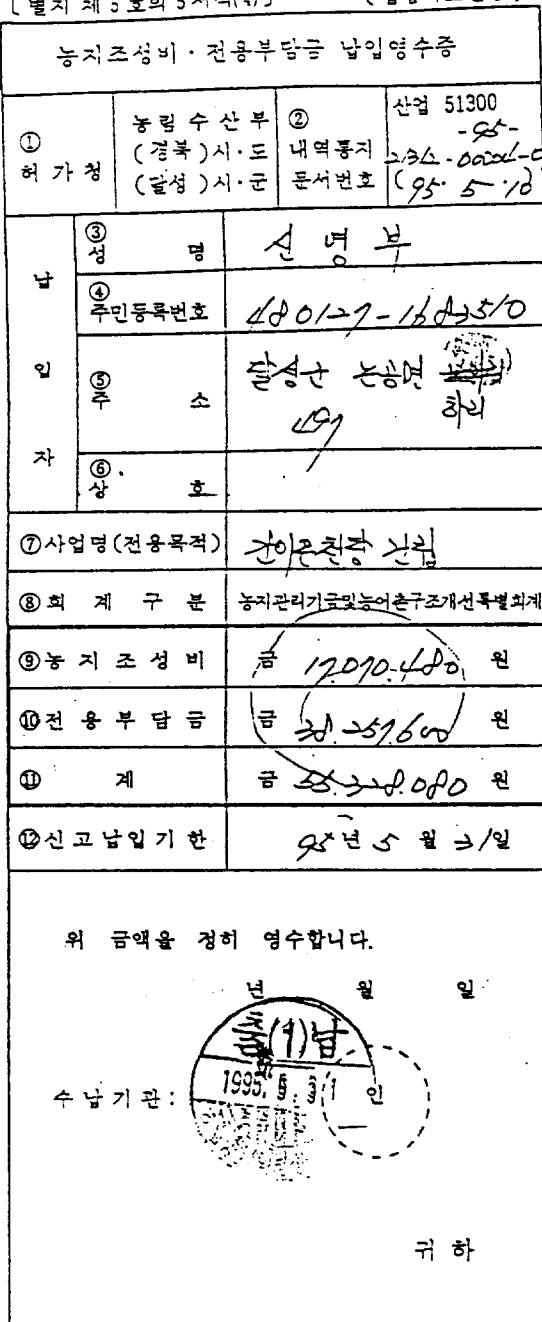 [ 별지 제 5 호의 5 서식
농지조성비 · 전용부담금 납입영수증
① 허 가 청
농림 수 산 부
(경북)시·도
(달성)시·군
② 내역통지 문서번호
산업 51300
-95-
(95. 5. 10)
납 입 자
③ 성 명
신 영 부
④ 주민등록번호
480127-1683510
⑤ 주 소
달성군 논공면
하리
497
⑥ 상 호
⑦사업명(전용목적)
간이온천장 건립
⑧회 계 구 분
농지관리기금및농어촌구조개선특별회계
⑨농 지 조 성 비
금 17,070,480 원
⑩전 용 부 담 금
금 38,257,600 원
⑪ 계
금 55,328,080 원
⑫신고납입기한
95년 5 월 31일
위 금액을 정히 영수합니다.
년 월 일
(1)납
1995. 5. 31
수납기관: 인
귀 하